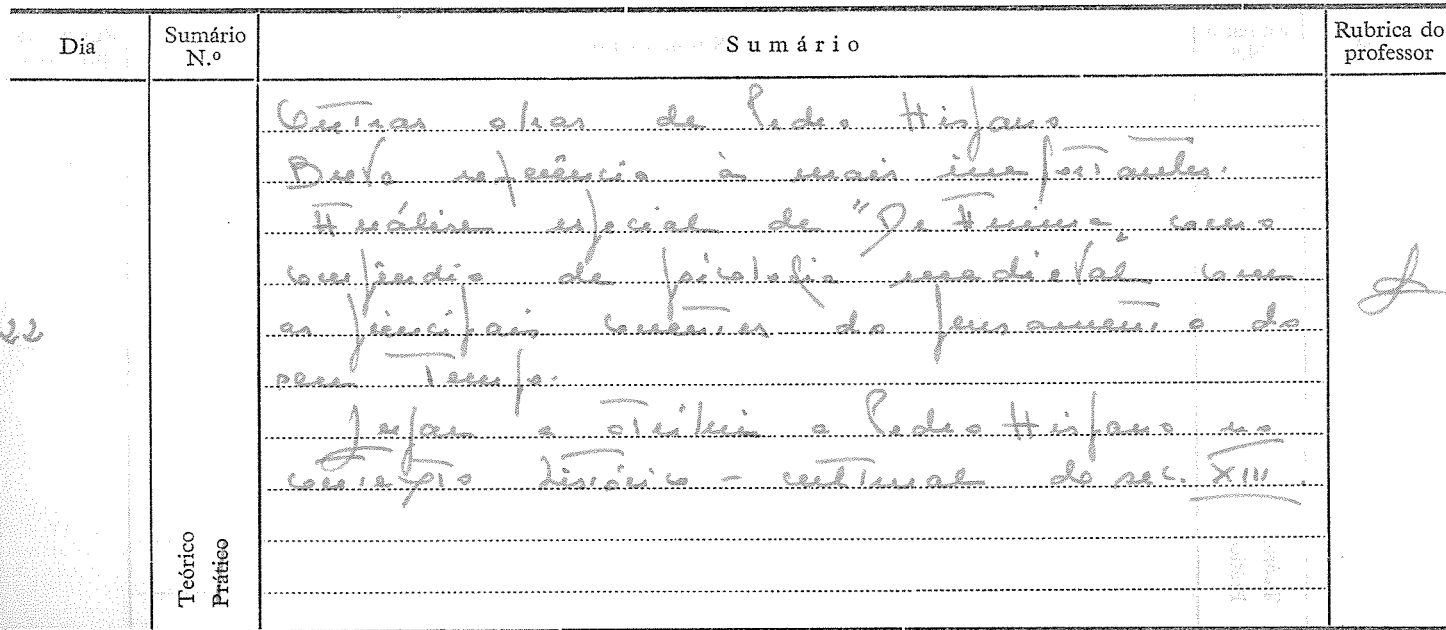 Dia
Sumário N.º
Sumário
Rubrica do professor
Outras obras de Pedro Hispano
Breve referência às mais importantes.
Análise especial de "De Anima", como
compêndio de psicologia medieval com
as principais correntes do pensamento do
seu Tempo.
Lugar a atribuir a Pedro Hispano no
contexto histórico-cultural do sec. XIII.
22
Teórico
Prático